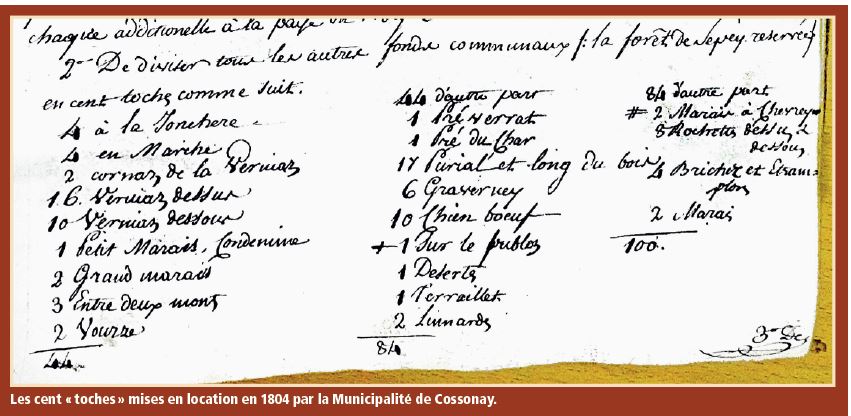 chaque additionelle à la paye
2° De diviser tous les autres fonds communaux /: la forêt de Sepey reservée
en cent toches comme suit.
4 à la Jonchere
4 en Marche
2 cornaz de la Verniaz
16. Verniaz dessus
10 Verniaz dessous
1 Petit Marais, Condemine
2 Grand marais
3 Entre deux mont
2 Vourze
44.
44 d'autre part
1 Pré verrat
1 Pré du Char
17 Purial et long du bois
6 Graverney
10 Chien boeuf
+ 1 Sur le publoz
1 Deserts
1 Terraillet
2 Linnards
84
84 d'autre part
# 2 Marais à Chevrey
8 Rochettes dessus &
dessous
4 Brichez et Etram-
plon
2 Marais
100.
3°
Les cent « toches » mises en location en 1804 par la Municipalité de Cossonay.